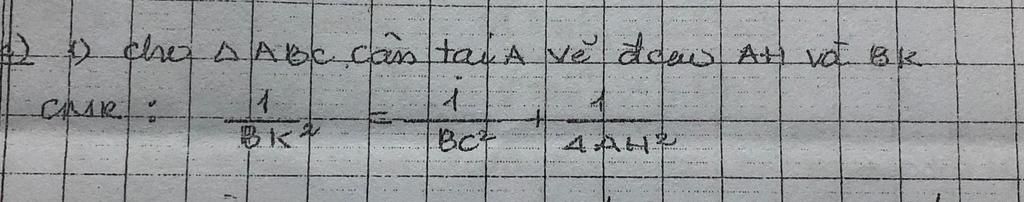 1) cho Δ ABC cân tại A vẽ đcao AH và BK
CMR : 1/BK² = 1/BC² + 1/4AH²